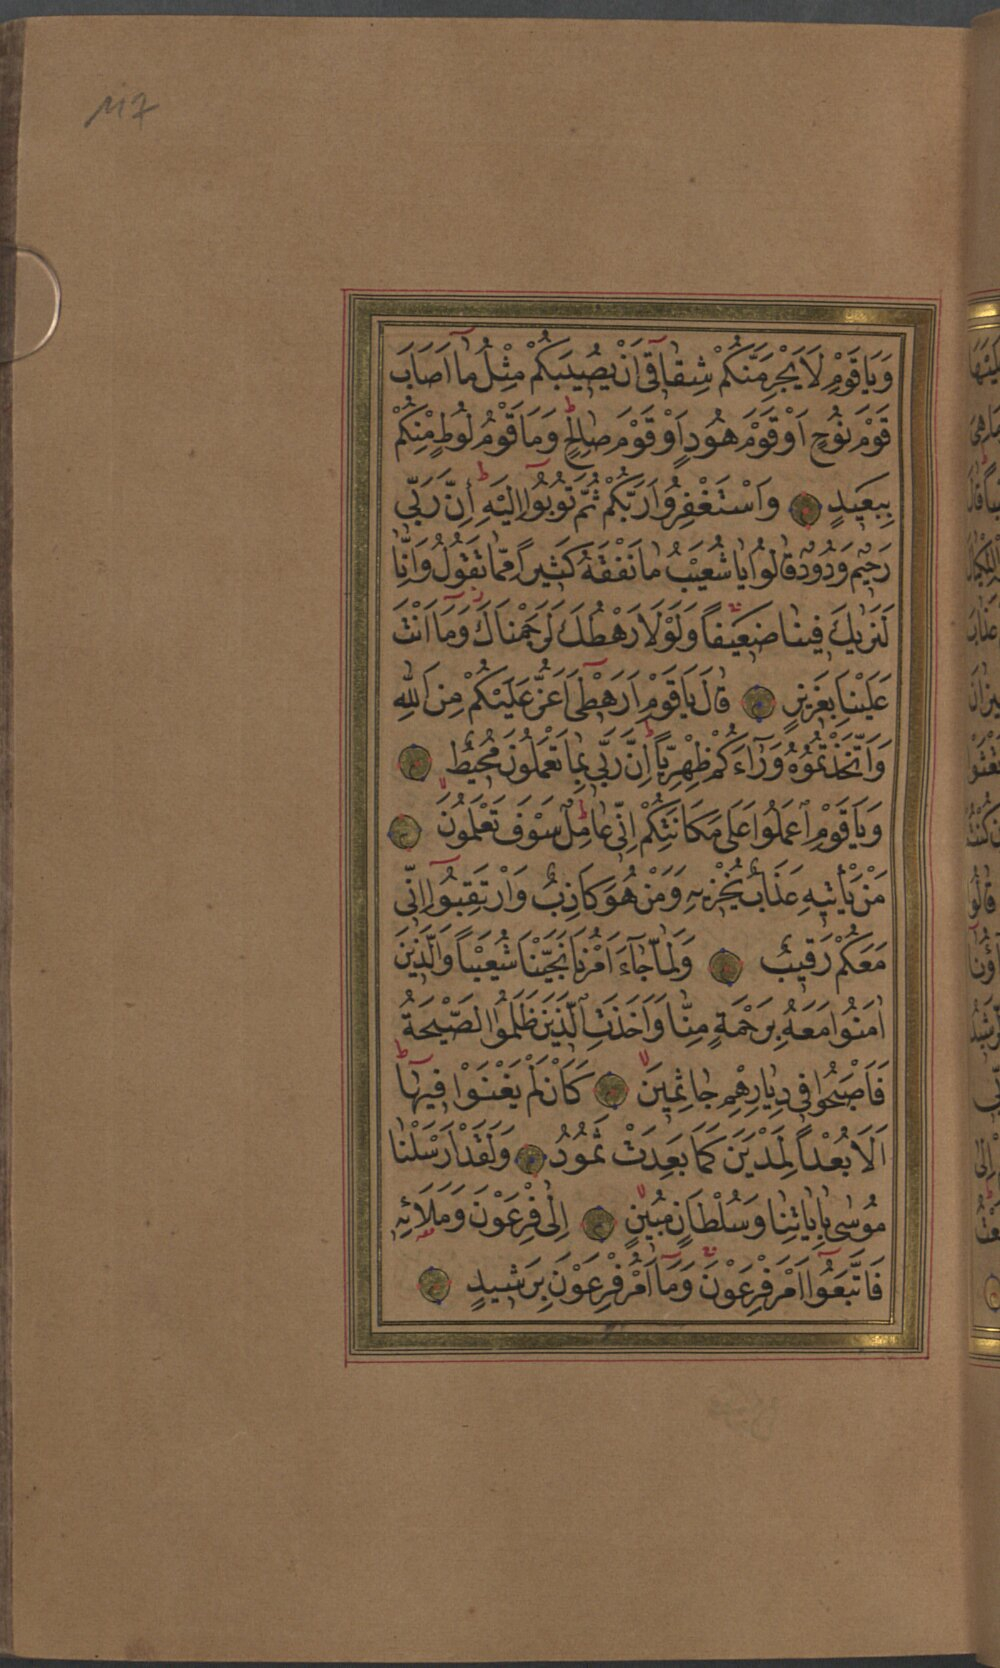 117
وَيَا قَوْمِ لَا يَجْرِمَنَّكُمْ شِقَاقٖٓى اَنْ يُصٖيبَكُمْ مِثْلُ مَٓا اَصَابَ
قَوْمَ نُوحٍ اَوْ قَوْمَ هُودٍ اَوْ قَوْمَ صَالِحٍ وَمَا قَوْمُ لُوطٍ مِنْكُمْ
بِبَعٖيدٍ وَاسْتَغْفِرُوا رَبَّكُمْ ثُمَّ تُوبُٓوا اِلَيْهِ اِنَّ رَبّٖى
رَحٖيمٌ وَدُودٌ قَالُوا يَا شُعَيْبُ مَا نَفْقَهُ كَثٖيراً مِمَّا تَقُولُ وَاِنَّا
لَنَرٰيكَ فٖينَا ضَعٖيفاً وَلَوْلَا رَهْطُكَ لَرَجَمْنَاكَ وَمَٓا اَنْتَ
عَلَيْنَا بِعَزٖيزٍ قَالَ يَا قَوْمِ اَرَهْطٖٓى اَعَزُّ عَلَيْكُمْ مِنَ اللّٰهِ
وَاتَّخَذْتُمُوهُ وَرَٓاءَكُمْ ظِهْرِيًّا اِنَّ رَبّٖى بِمَا تَعْمَلُونَ مُحٖيطٌ
وَيَا قَوْمِ اعْمَلُوا عَلٰى مَكَانَتِكُمْ اِنّٖى عَامِلٌ سَوْفَ تَعْلَمُونَ
مَنْ يَأْتٖيهِ عَذَابٌ يُخْزٖيهِ وَمَنْ هُوَ كَاذِبٌ وَارْتَقِبُٓوا اِنّٖى
مَعَكُمْ رَقٖيبٌ وَلَمَّا جَٓاءَ اَمْرُنَا نَجَّيْنَا شُعَيْباً وَالَّذٖينَ
اٰمَنُوا مَعَهُ بِرَحْمَةٍ مِنَّا وَاَخَذَتِ الَّذٖينَ ظَلَمُوا الصَّيْحَةُ
فَاَصْبَحُوا فٖى دِيَارِهِمْ جَاثِمٖينَ كَاَنْ لَمْ يَغْنَوْا فٖيهَا
اَلَا بُعْداً لِمَدْيَنَ كَمَا بَعِدَتْ ثَمُودُ وَلَقَدْ اَرْسَلْنَا
مُوسٰى بِاٰيَاتِنَا وَسُلْطَانٍ مُبٖينٍ اِلٰى فِرْعَوْنَ وَمَلَائِهٖ
فَاتَّبَعُٓوا اَمْرَ فِرْعَوْنَ وَمَٓا اَمْرُ فِرْعَوْنَ بِرَشٖيدٍ